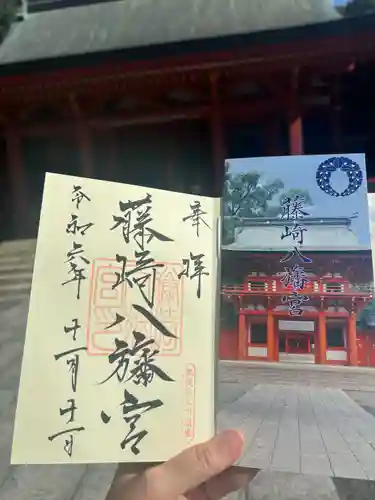 奉拝
藤崎八旛宮
令和六年十一月十一日
藤崎八旛宮